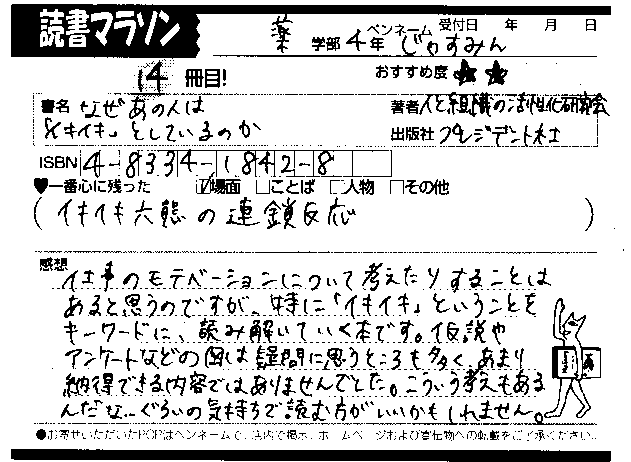 読書マラソン
薬 学部 4年 ペンネーム じゃすみん 受付日 年 月 日
14 冊目! おすすめ度 ★ ★
書名 なぜあの人は
「イキイキ」としているのか
著者 人と組織の活性化研究会
出版社 プレジデント社
ISBN 4-8334-1842-8
♥一番心に残った ☑場面 □ことば □人物 □その他
(イキイキ状態の連鎖反応)
感想
仕事のモチベーションについて考えたりすることは
あると思うのですが、特に「イキイキ」ということを
キーワードに、読み解いていく本です。仮説や
アンケートなどの図は疑問に思うところも多く、あまり
納得できる内容ではありませんでした。こういう考えもある
んだな…ぐらいの気持ちで読む方がいいかもしれません。
●お寄せいただいたPOPはペンネームで、店内で掲示、ホームページおよび宣伝物への転載をご了承ください。